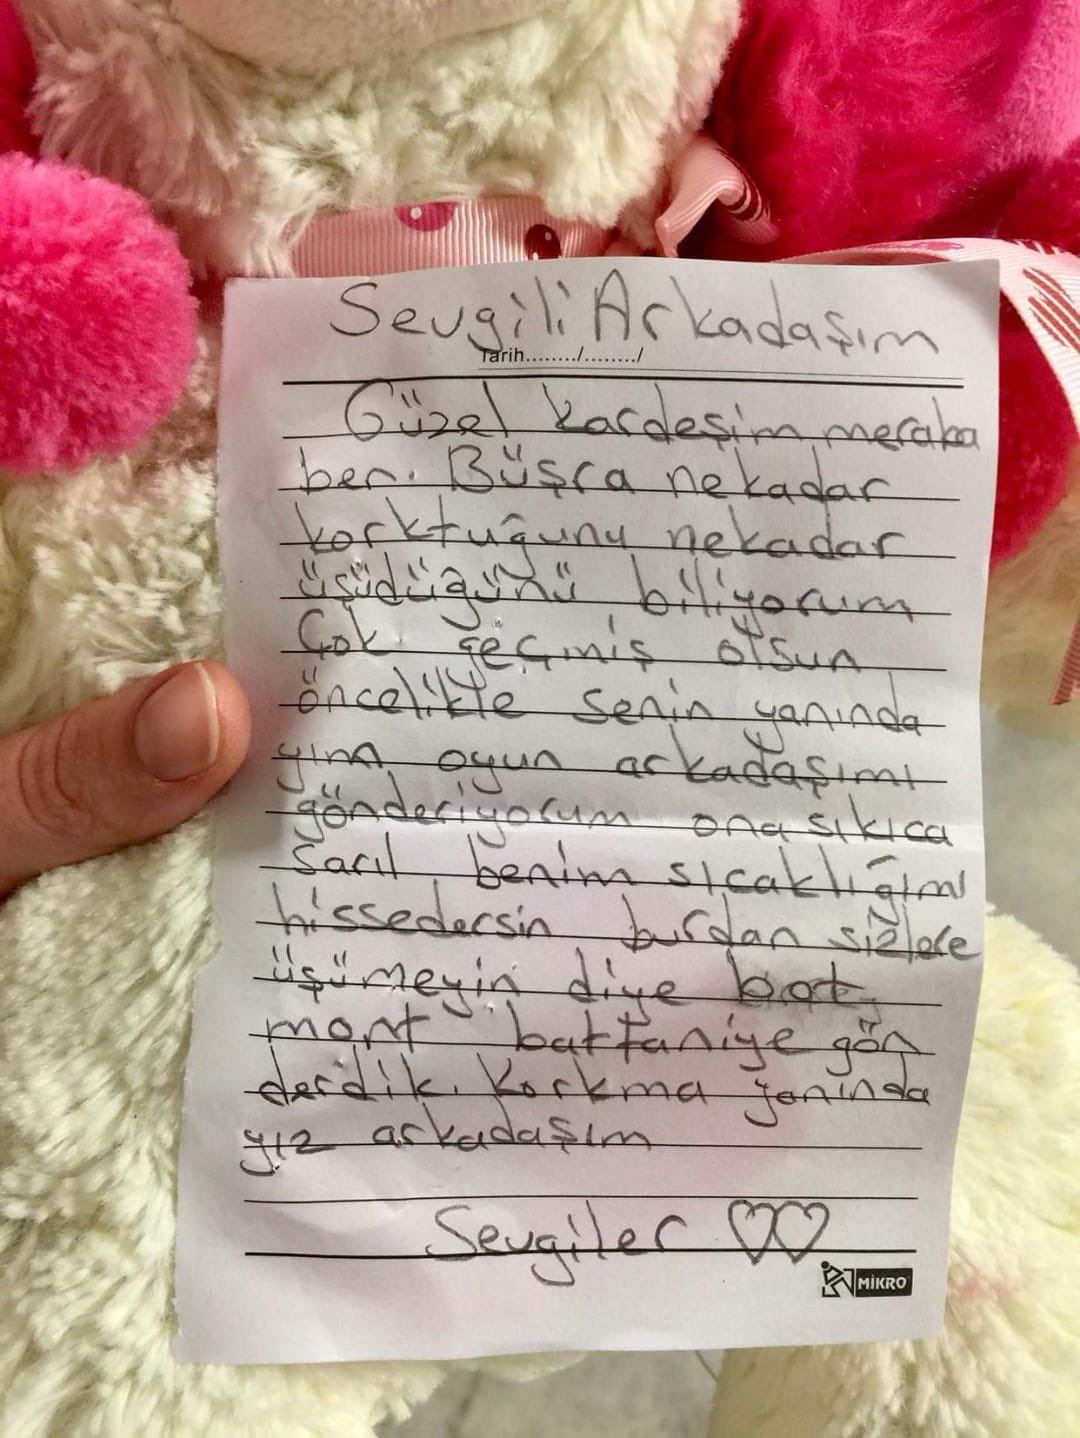 Sevgili Arkadaşım
Tarih......../......../
Güzel kardeşim meraba
ben. Büşra nekadar
korktuğunu nekadar
üşüdüğünü biliyorum
Çok geçmiş olsun
öncelikle senin yanında
yım oyun arkadaşımı
gönderiyorum ona sıkıca
sarıl benim sıcaklığımı
hissedersin burdan sizlere
üşümeyin diye bot,
mont battaniye gön
derdik. Korkma yanında
yız arkadaşım
Sevgiler
MİKRO